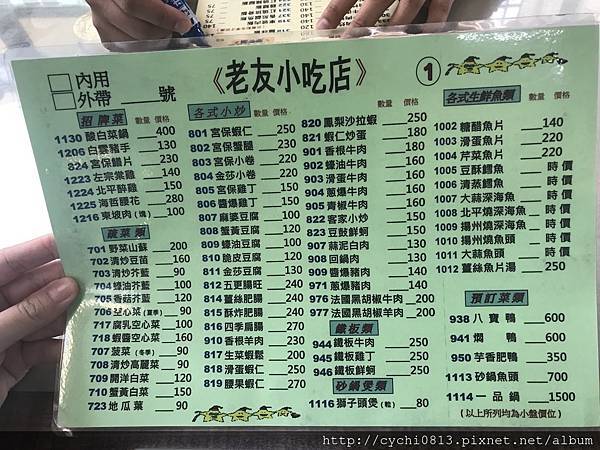 《老友小吃店》
①
內用
外帶 ___號
招牌菜 數量 價格
1130 酸白菜鍋 400
1206 白雲豬手 130
824 宮保鱔片 230
1223 左宗棠雞 150
1224 北平醉雞 150
1225 海哲腰花 280
1216 東坡肉(塊) 100
蔬菜類 數量 價格
701 野菜山蘇 200
702 清炒豆苗 160
703 清炒芥藍 90
704 蠔油芥藍 100
705 香菇芥藍 120
706 空心菜(夏季) 90
717 腐乳空心菜 100
718 蝦醬空心菜 160
707 菠菜(冬季) 90
708 清炒高麗菜 90
709 開洋白菜 120
710 蟹黃白菜 150
723 地瓜葉 90
各式小炒 數量 價格
801 宮保蝦仁 250
802 宮保蟹腿 230
803 宮保小卷 220
804 金莎小卷 220
805 宮保雞丁 150
806 醬爆雞丁 150
807 麻婆豆腐 100
808 蟹黃豆腐 180
809 蠔油豆腐 100
810 脆皮豆腐 120
811 金莎豆腐 130
812 五更腸旺 240
814 薑絲肥腸 240
815 酥炸肥腸 240
816 四季扁腸 300
910 香根羊肉 230
817 生菜蝦鬆 200
818 滑蛋蝦仁 250
819 腰果蝦仁 250
數量 價格
820 鳳梨沙拉蝦 250
821 蝦仁炒蛋 180
901 香根牛肉 180
902 蠔油牛肉 180
903 滑蛋牛肉 180
904 蔥爆牛肉 180
905 青椒牛肉 180
822 客家小炒 150
823 豆鼓鮮蚵 150
907 蒜泥白肉 130
908 回鍋肉 130
909 醬爆豬肉 130
971 蔥爆豬肉 130
976 法國黑胡椒牛肉 200
977 法國黑胡椒羊肉 200
鐵板類
944 鐵板牛肉 250
945 鐵板雞丁 250
946 鐵板鮮蚵 250
砂鍋煲類
1116 獅子頭煲(粒) 80
各式生鮮魚類
數量 價格
1002 糖醋魚片 140
1003 滑蛋魚片 220
1004 芹菜魚片 220
1005 豆酥鱈魚 時價
1006 清蒸鱈魚 時價
1007 大蒜深海魚 時價
1008 北平燒深海魚 時價
1009 揚州燒深海魚 時價
1010 揚州燒魚頭 時價
1011 大蒜魚頭 時價
1012 薑絲魚片湯 250
預訂菜類
938 八寶鴨 600
941 燜鴨 600
950 芋香肥鴨 350
1113 砂鍋魚頭 700
1114 一品鍋 1500
(以上所列均為小盤價位)
http://cychi0813.pixnet.net/album